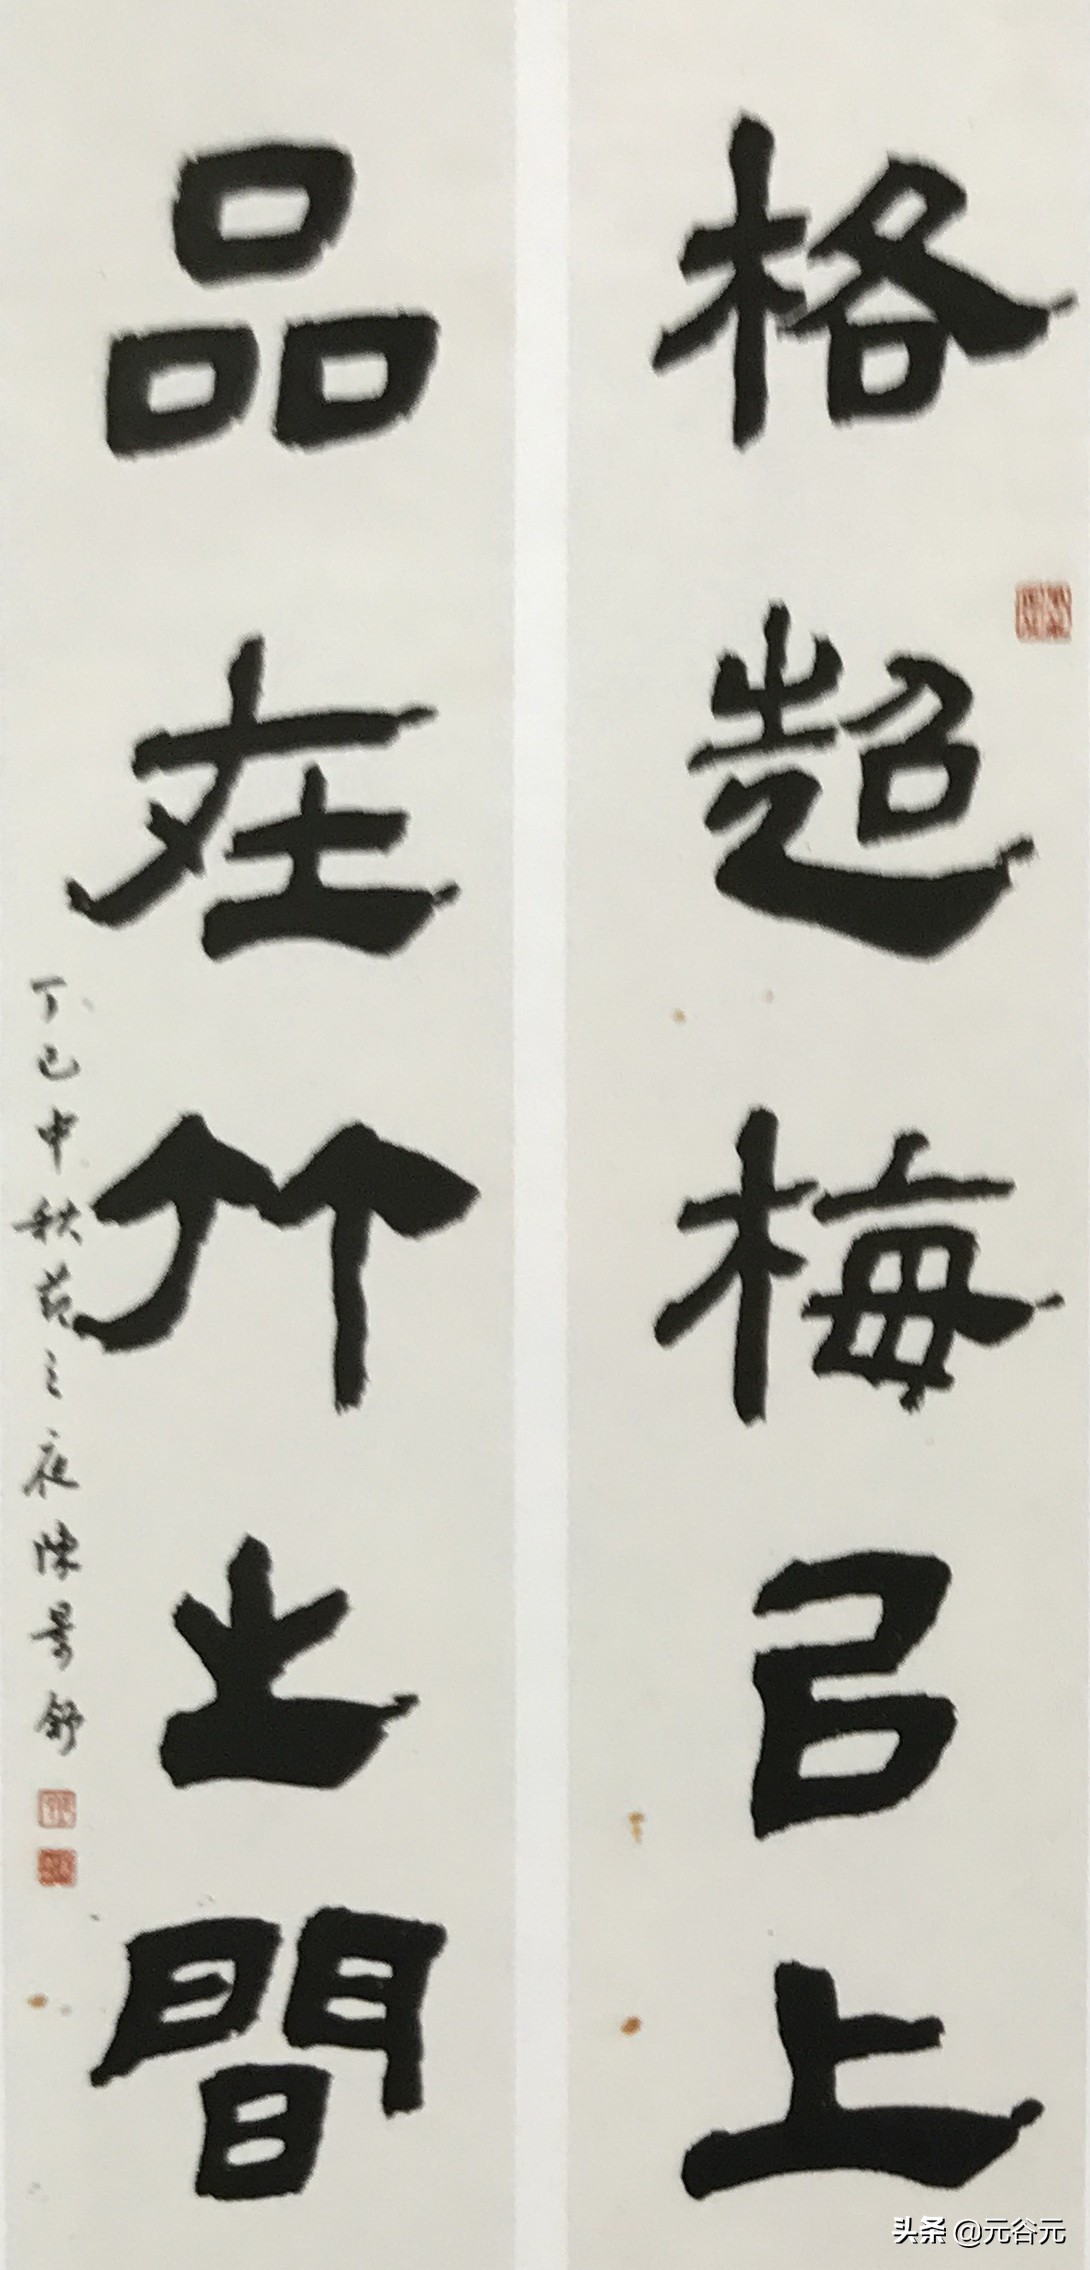 格超梅㠯上
品在竹之間
丁巳中秋之夜陳景舒
头条 @元谷元